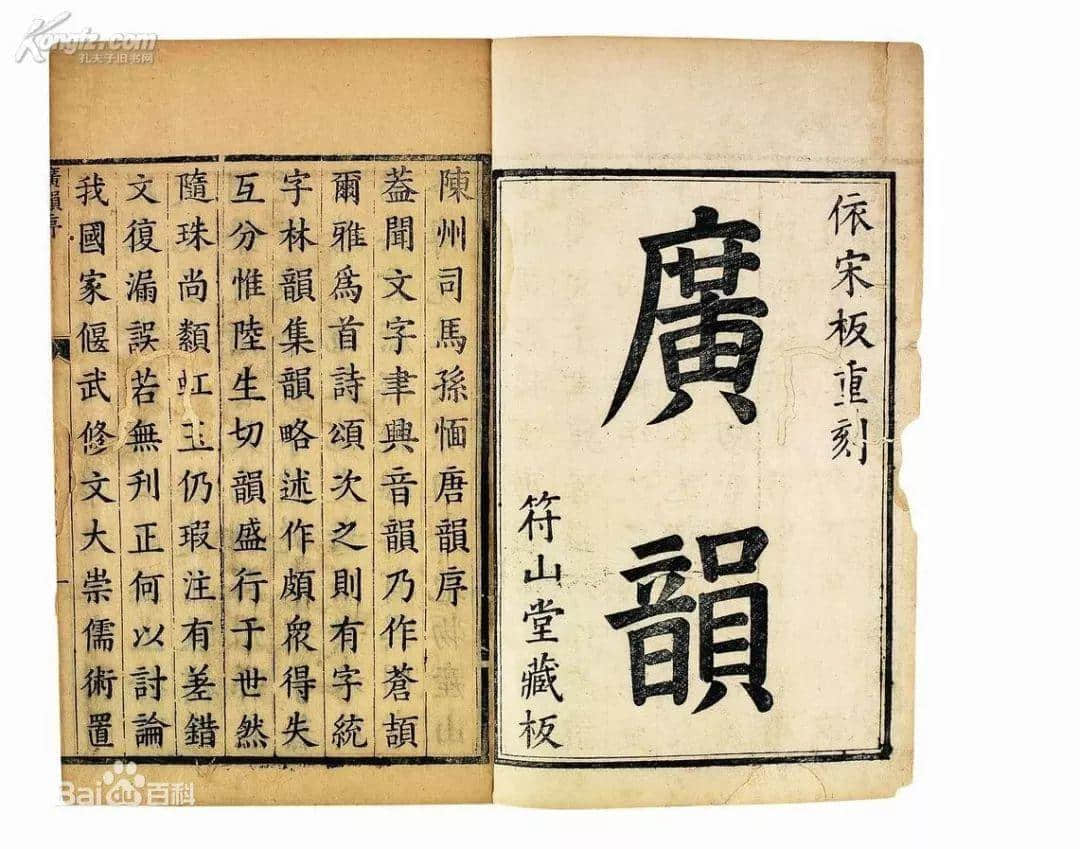 Kongfz.com
孔夫子旧书网
依宋板重刻
廣韻
符山堂藏板
陳州司馬孫愐唐韻序
葢聞文字聿興音韻乃作蒼頡
爾雅爲首詩頌次之則有字統
字林韻集韻略述作頗衆得失
互分惟陸生切韻盛行于世然
隨珠尚纇虹玉仍瑕注有差錯
文復漏誤若無刋正何以討論
我國家偃武修文大崇儒術置
廣韻序
一
Baidu百科